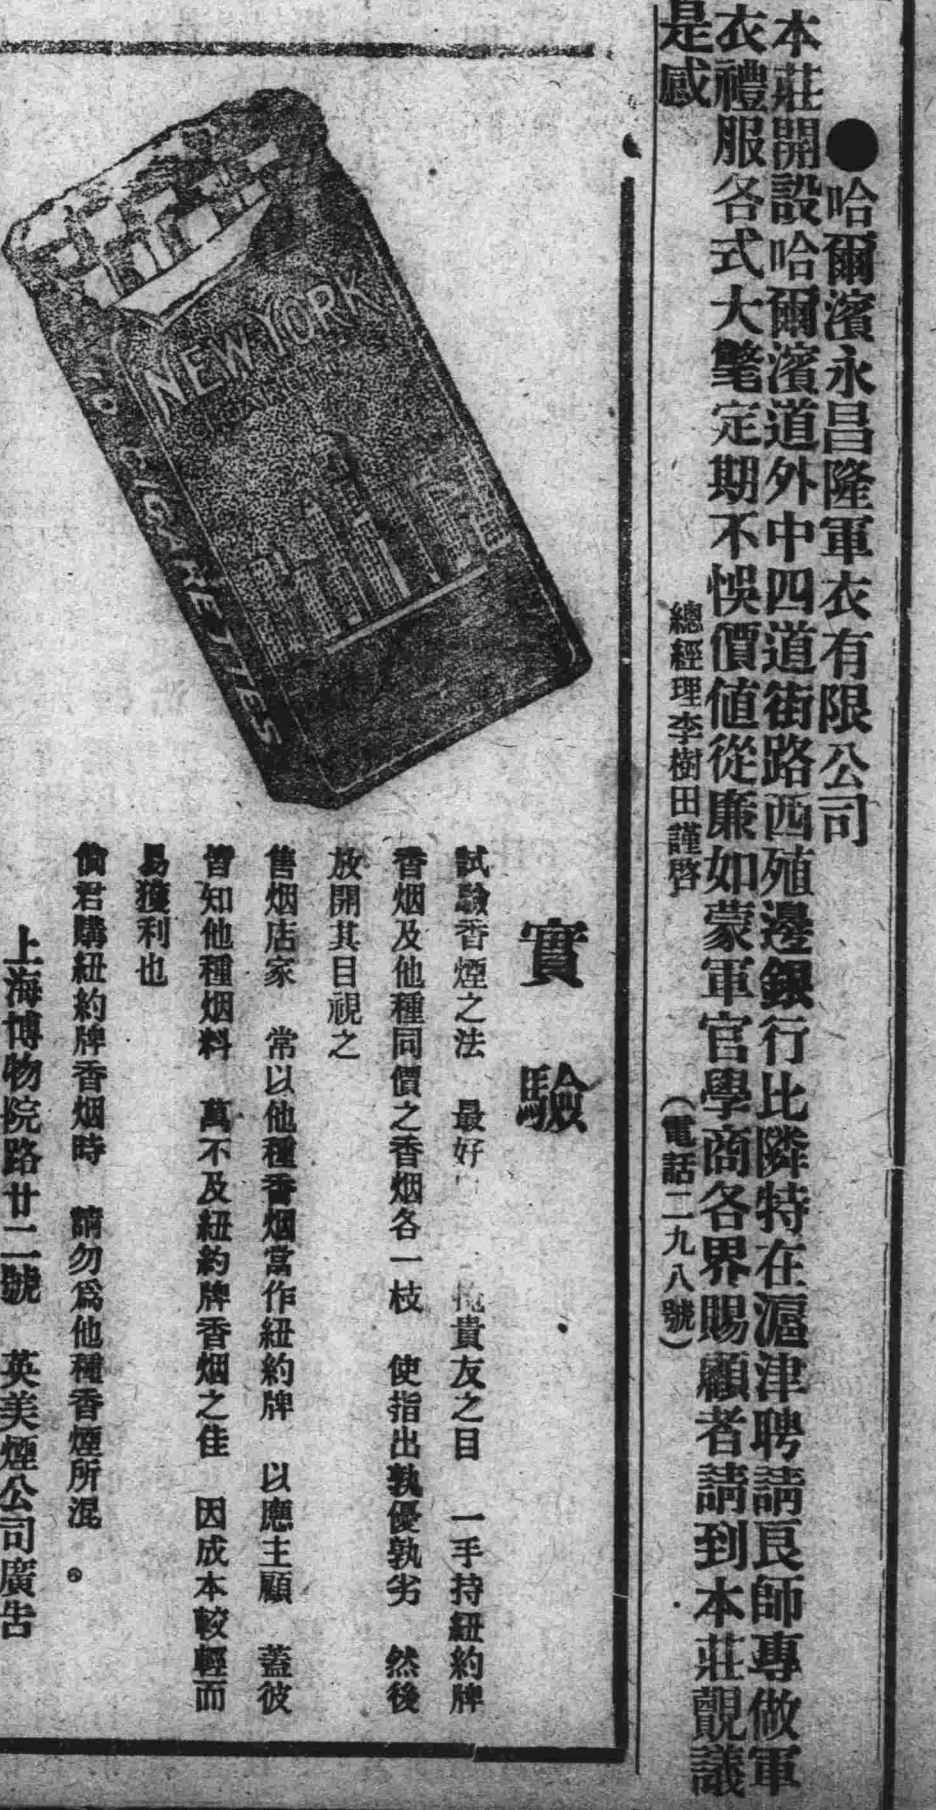 ●哈爾濱永昌隆軍衣有限公司
本莊開設哈爾濱道外中四道街路西殖邊銀行比隣特在滬津聘請良師專做軍
衣禮服各式大氅定期不悞價値從廉如蒙軍官學商各界賜顧者請到本莊覿議
是感
總經理李樹田謹啓
(電話二九八號)
實驗
試驗香煙之法 最好 掩貴友之目 一手持紐約牌
香烟及他種同價之香烟各一枝 使指出孰優孰劣 然後
放開其目視之
售烟店家 常以他種香烟當作紐約牌 以應主顧 蓋彼
皆知他種烟料 萬不及紐約牌香烟之佳 因成本較輕而
易獲利也
倘君購紐約牌香烟時 請勿爲他種香煙所混。
上海博物院路廿二號 英美煙公司廣告
NEW YORK
CIGARETTES
CIGARETTES